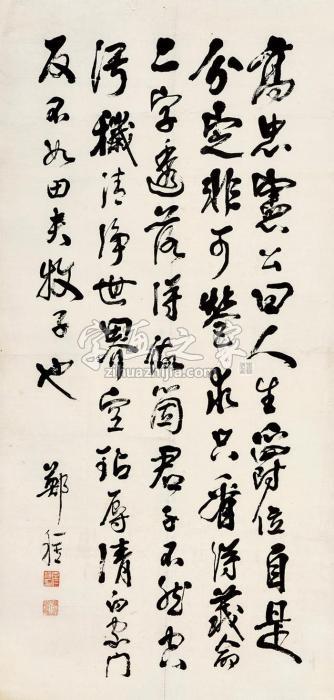 高忠憲公曰人生爵位自是
分定非可營求只看得義命
二字透落得做箇君子不然空
污穢清淨世界空玷辱清白家門
反不如田夫牧子也
鄭
字画之家
zihuazhijia.com